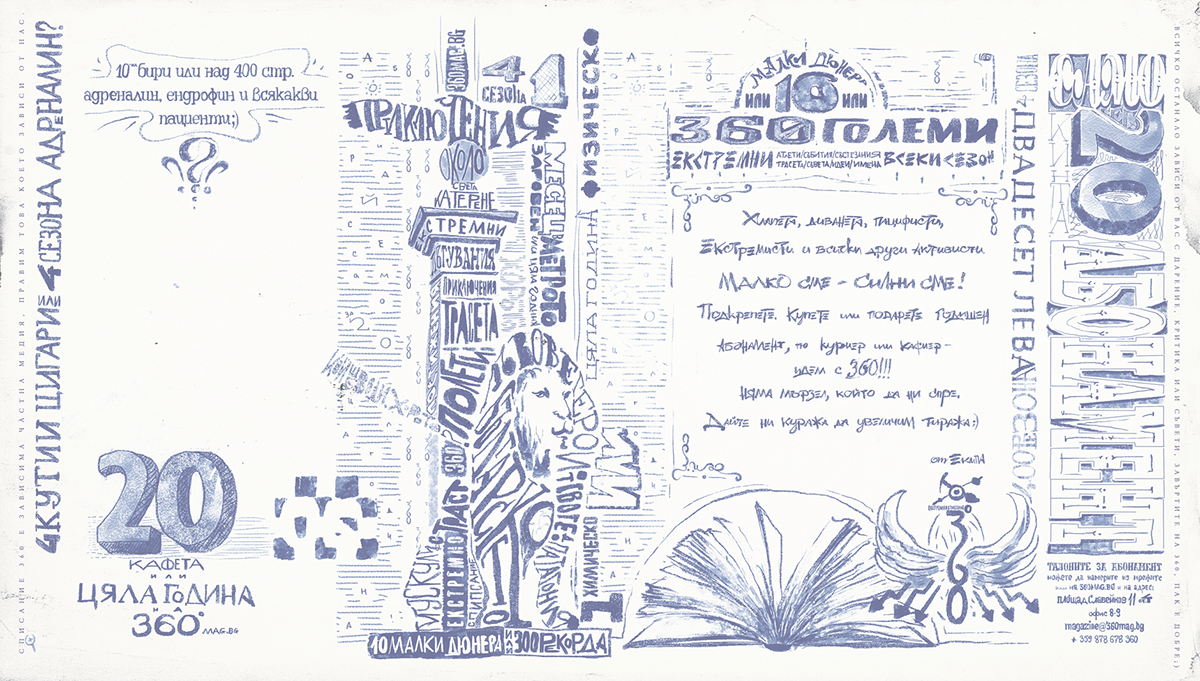 СПИСАНИЕ 360 Е ЗАВИСИМА ЧАСТНА МЕДИЯ, ПРАВИМ ТОВА КОЕТО ЗАВИСИ ОТ НАС.
4 КУТИИ ЦИГАРИ
4 СЕЗОНА АДРЕНАЛИН?
10 бири или над 400 стр.
адреналин, ендрофин и всякакви
пациенти;)
20
КАФЕТА
ИЛИ
ЦЯЛА ГОДИНА
360 MAG.BG
360MAG.BG
4
СЕЗОНА
1
ПРИКЛЮЧЕНИЯ
ОКОЛО
СВЕТА
КАТЕРЕНЕ
ЕКСТРЕМНИ
ПРИКЛЮЧЕНИЯ
ТРАСЕТА
ПОЛЕТИ
МЕСЕЦ
МЕТРОТО
ЗАРОБЕН
ИЛИ ЦЯЛА ГОДИНА
ФИЗИЧЕСКО
ЦЯЛА ГОДИНА
ХИМИЧЕСКО
1
МУСКУЛ
ЕКСТРЕМНО
СПИСАНИЕ
360
10 МАЛКИ ДЮНЕРА
300 РЕКОРДА
МАЛКИ ДЮНЕРА
ИЛИ 10 ИЛИ
360 ГОЛЕМИ
ЕКСТРЕМНИ АТЛЕТИ/СЪБИТИЯ/СЪСТЕЗАНИЯ
ТРАСЕТА/СЪВЕТА/ИДЕИ/ИМЕНА ВСЕКИ СЕЗОН
Хлапета, диванета, пацифисти,
Екстремисти и всички други активисти
Малко сме - силни сме!
Подкрепете. Купете или подарете годишен
абонамент, по куриер или кафиер -
идем с 360!!!
Няма мързел, който да ни спре,
Дайте ни куража да увеличим тиража:)
от Екипа
360
ДВАДЕСЕТ ЛЕВА
20
КИНТА
АБОНАМЕНТ
ТАЛОНИТЕ ЗА АБОНАМЕНТ
можете да намерите из мрежите
или на 360MAG.BG и на адрес:
площад Славейков 11
офис 8-9
magazine@360mag.bg
+ 359 878 678 360
ВСИЧКО ОСТАНАЛО ЗАВИСИ ОТ ВАС С ДАРЕНИЕ, КРИТИКА ИЛИ СЪВЕТИ. ЗАВЪРТЕТЕ НА 360, ПАК Е ДОБРЕ;)